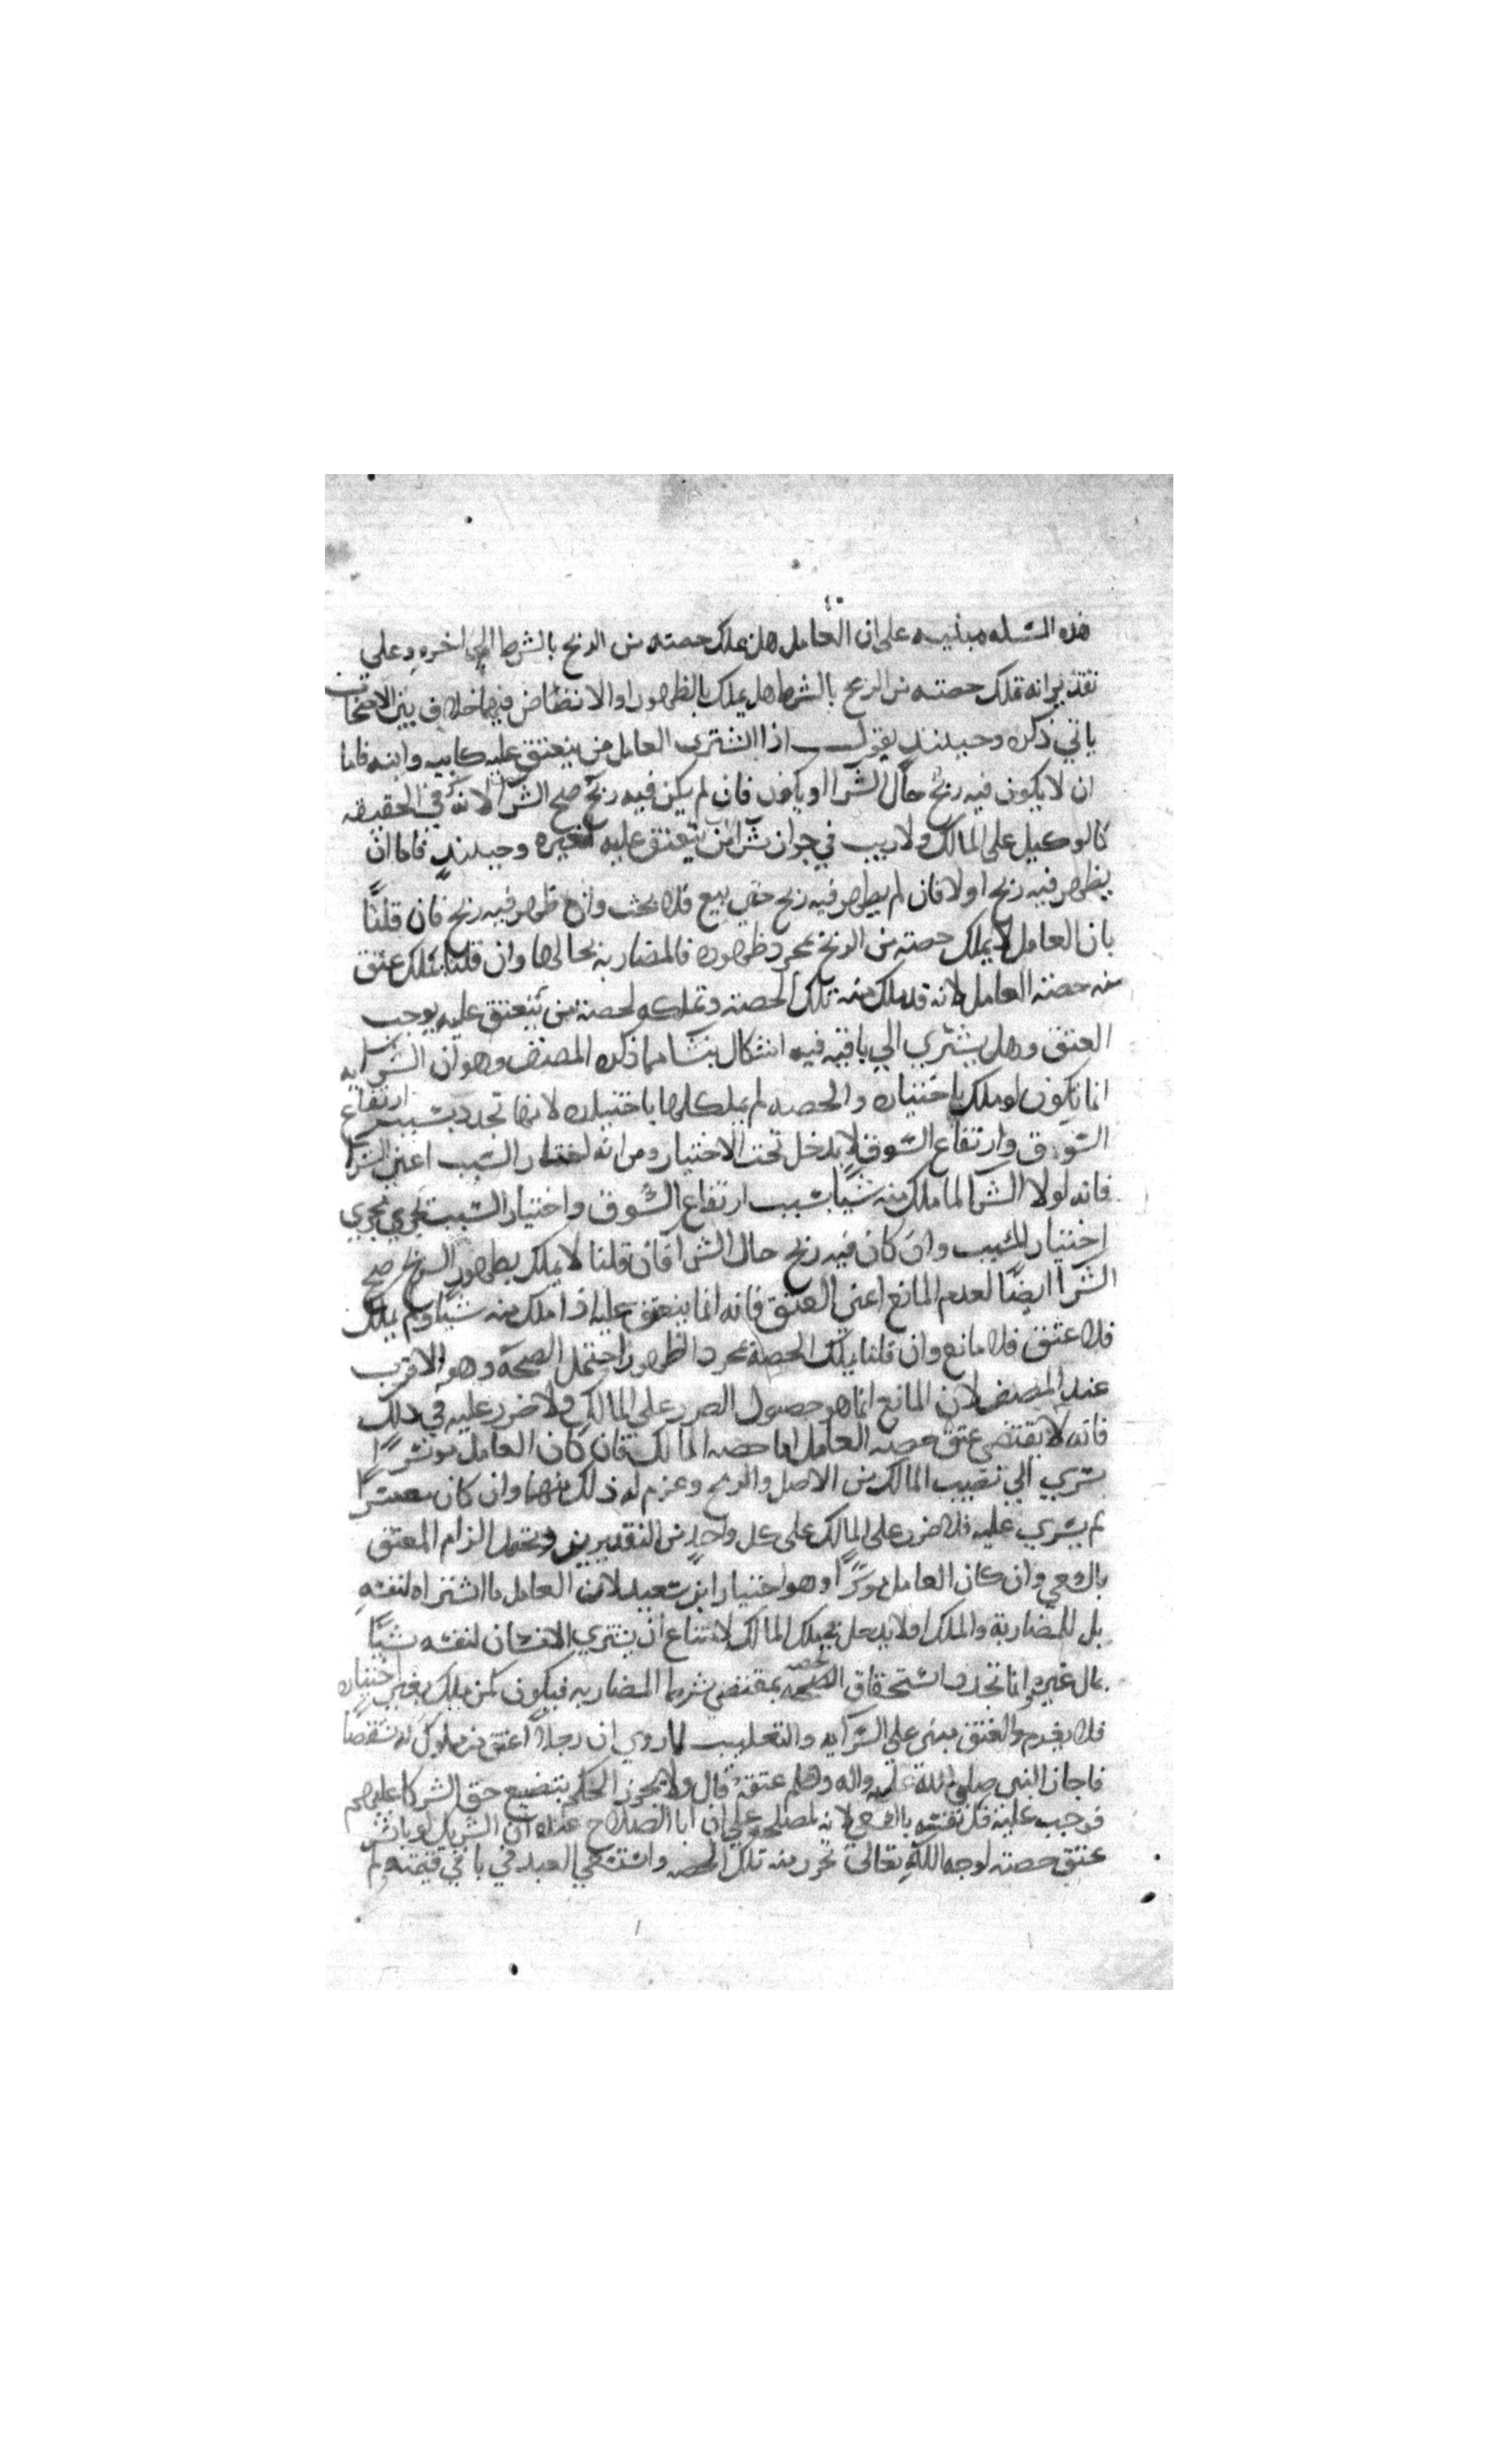 هذه المسله مبنيه على ان العامل هل يملك حصته من الربح بالشرط ام اجره وعلى
تقدير انه يملك حصته من الربح بالشرط هل يملك بالظهور او الانضاض فيهما خلاف بين الاصحاب
ياتي ذكره وحينئذ يقول اذا اشترى العامل من ينعتق عليه كابيه وابنه فاما
ان لا يكون فيه ربح حال الشرا او يكون فان لم يكن فيه ربح صح الشرا لانه في الحقيقه
كالوكيل على المالك ولا ريب في جواز شرا من ينعتق عليه لغيره وحينئذ فاما ان
يظهر فيه ربح او لا فان لم يظهر فيه ربح حتى بيع فلا بحث وان ظهر فيه ربح فان قلنا
بان العامل لا يملك حصته من الربح بمجرد ظهوره فالمضاربه بحالها وان قلنا يملك عتق
منه حصته العامل لانه قد ملك منه تلك الحصته وتملكه لحصة من ينعتق عليه يوجب
العتق وهل يسري الى باقيه فيه اشكال ينشا مما ذكره المصنف وهو ان السرايه
انما يكون لو ملك باختياره والحصه لم يملكها باختياره لانها تجدد بسبب ارتفاع
السوق وارتفاع السوق لا يدخل تحت الاختيار ومن انه اختار السبب اعني الشرا
فانه لولا الشرا لما ملك منه شيا بسبب ارتفاع السوق واختيار السبب يجري مجرى
اختيار المسبب وان كان فيه ربح حال الشرا فان قلنا لا يملك بظهور الربح صح
الشرا ايضا لعدم المانع اعني العتق فانه انما ينعتق عليه اذا ملك منه شيا ولم يملك
فلا عتق فلا مانع وان قلنا يملك الحصة بمجرد الظهور احتمل الصحة وهو الاقرب
عند المصنف لان المانع انما هو حصول الضرر على المالك ولا ضرر عليه في ذلك
فانه لا يقتضي عتق حصه العامل اما حصه المالك فان كان العامل موسرا
يسري الى نصيب المالك من الاصل والربح وغرم له ذلك منهما وان كان معسرا
لم يسري عليه فلا ضرر على المالك على كل واحد من التقديرين ويحتمل الزام المعتق
بالسعي وان كان العامل موسرا وهو اختيار ابن سعيد لان العامل ما اشتراه لنفسه
بل للمضاربة والملك اولا يدخل تحت ملك المالك لامتناع ان يشتري الانسان لنفسه شيا
بمال غيره وانما تجدد استحقاق الحصه بمقتضى شرط المضاربه فيكون كمن ملك بغير اختياره
فلا يغرم والعتق مبنى على السرايه والتغليب لما روي ان رجلا اعتق من مملوك له شقصا
فاجاز النبي صلى الله عليه واله وسلم عتقه قال ولا يجوز الحكم بتضيع حق الشركا عليهم
فوجب عليه فك نفسه بالسعي لانه لمصلحته على ان ابا الصلاح عنده ان الشريك لو باشر
عتق حصته لوجه الله تعالى تحرر منه تلك الحصه واستسعي العبد في باقي قيمته ولم